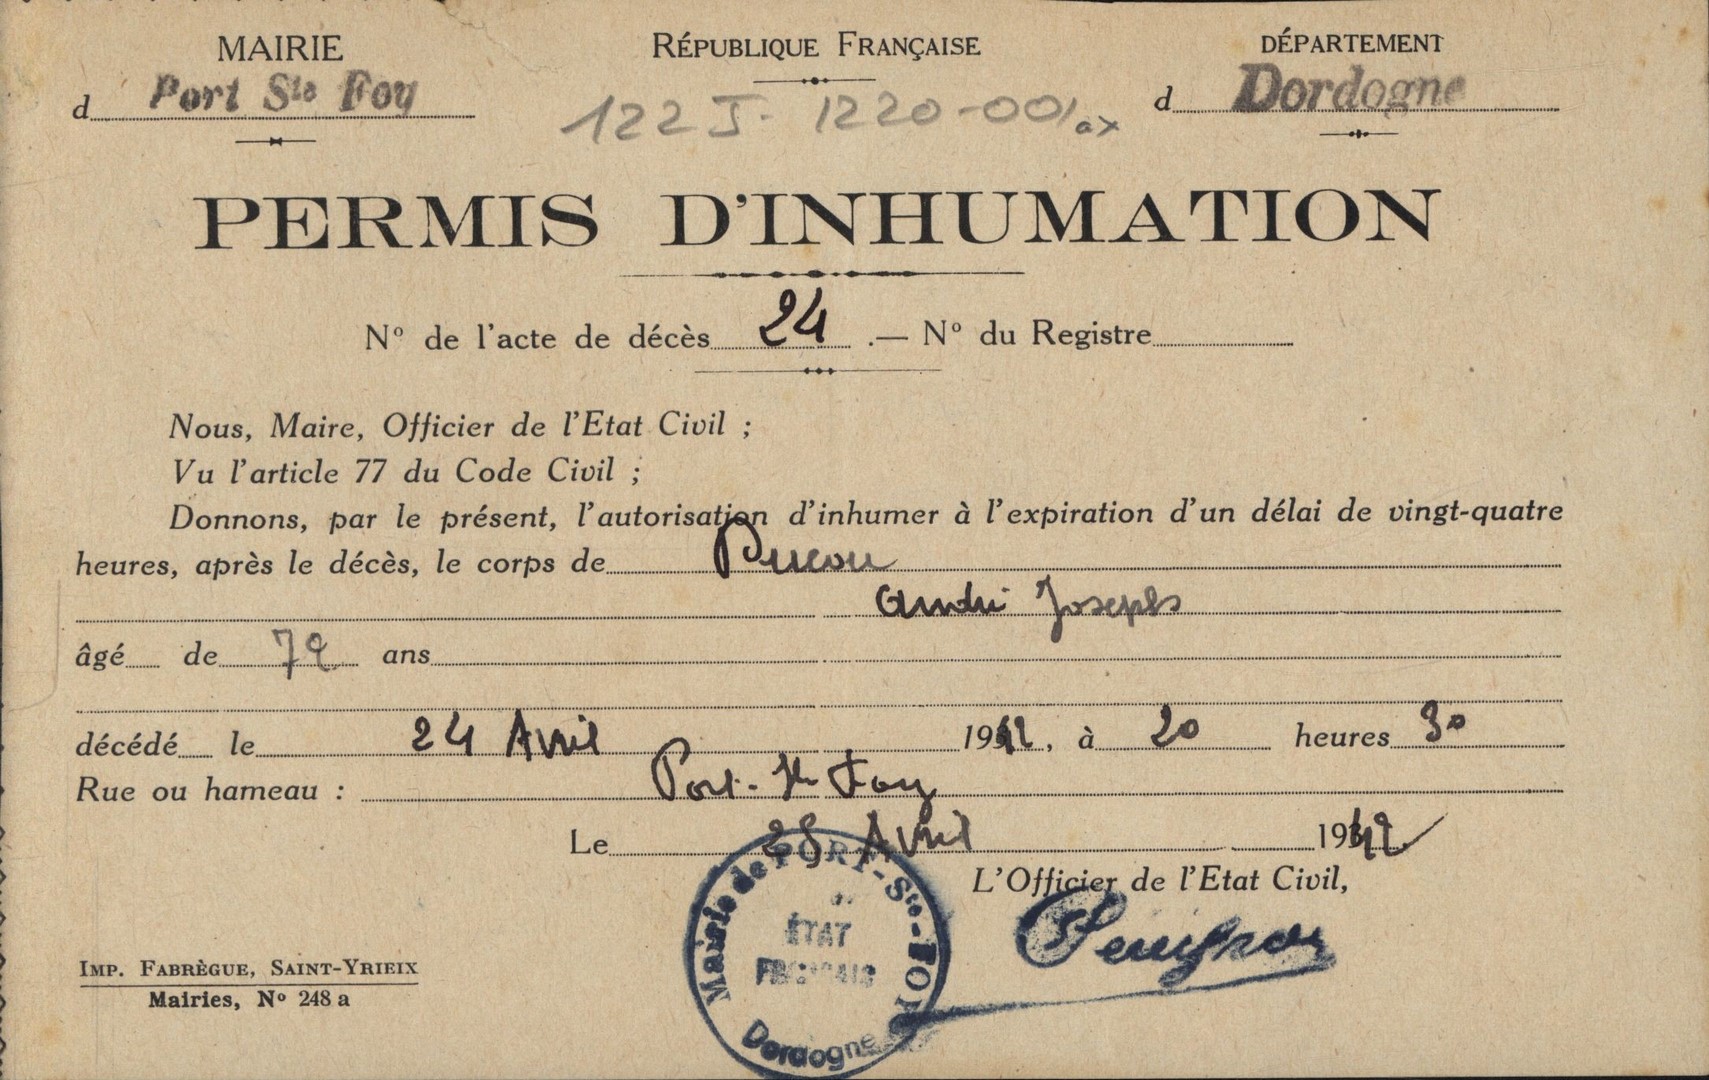 MAIRIE
d Port Ste Foy
RÉPUBLIQUE FRANÇAISE
122 J. 1220-001
DÉPARTEMENT
d Dordogne
PERMIS D'INHUMATION
No de l'acte de décès 24 .— No du Registre
Nous, Maire, Officier de l'Etat Civil ;
Vu l'article 77 du Code Civil ;
Donnons, par le présent, l'autorisation d'inhumer à l'expiration d'un délai de vingt-quatre
heures, après le décès, le corps de
André Joseph
âgé de 72 ans
décédé le 24 Avril 1942, à 20 heures 30
Rue ou hameau : Port-Ste Foy
Le 25 Avril 1942
L'Officier de l'Etat Civil,
Mairie de PORT-Ste-FOY
ÉTAT
FRANÇAIS
Dordogne
IMP. FABRÈGUE, SAINT-YRIEIX
Mairies, No 248 a